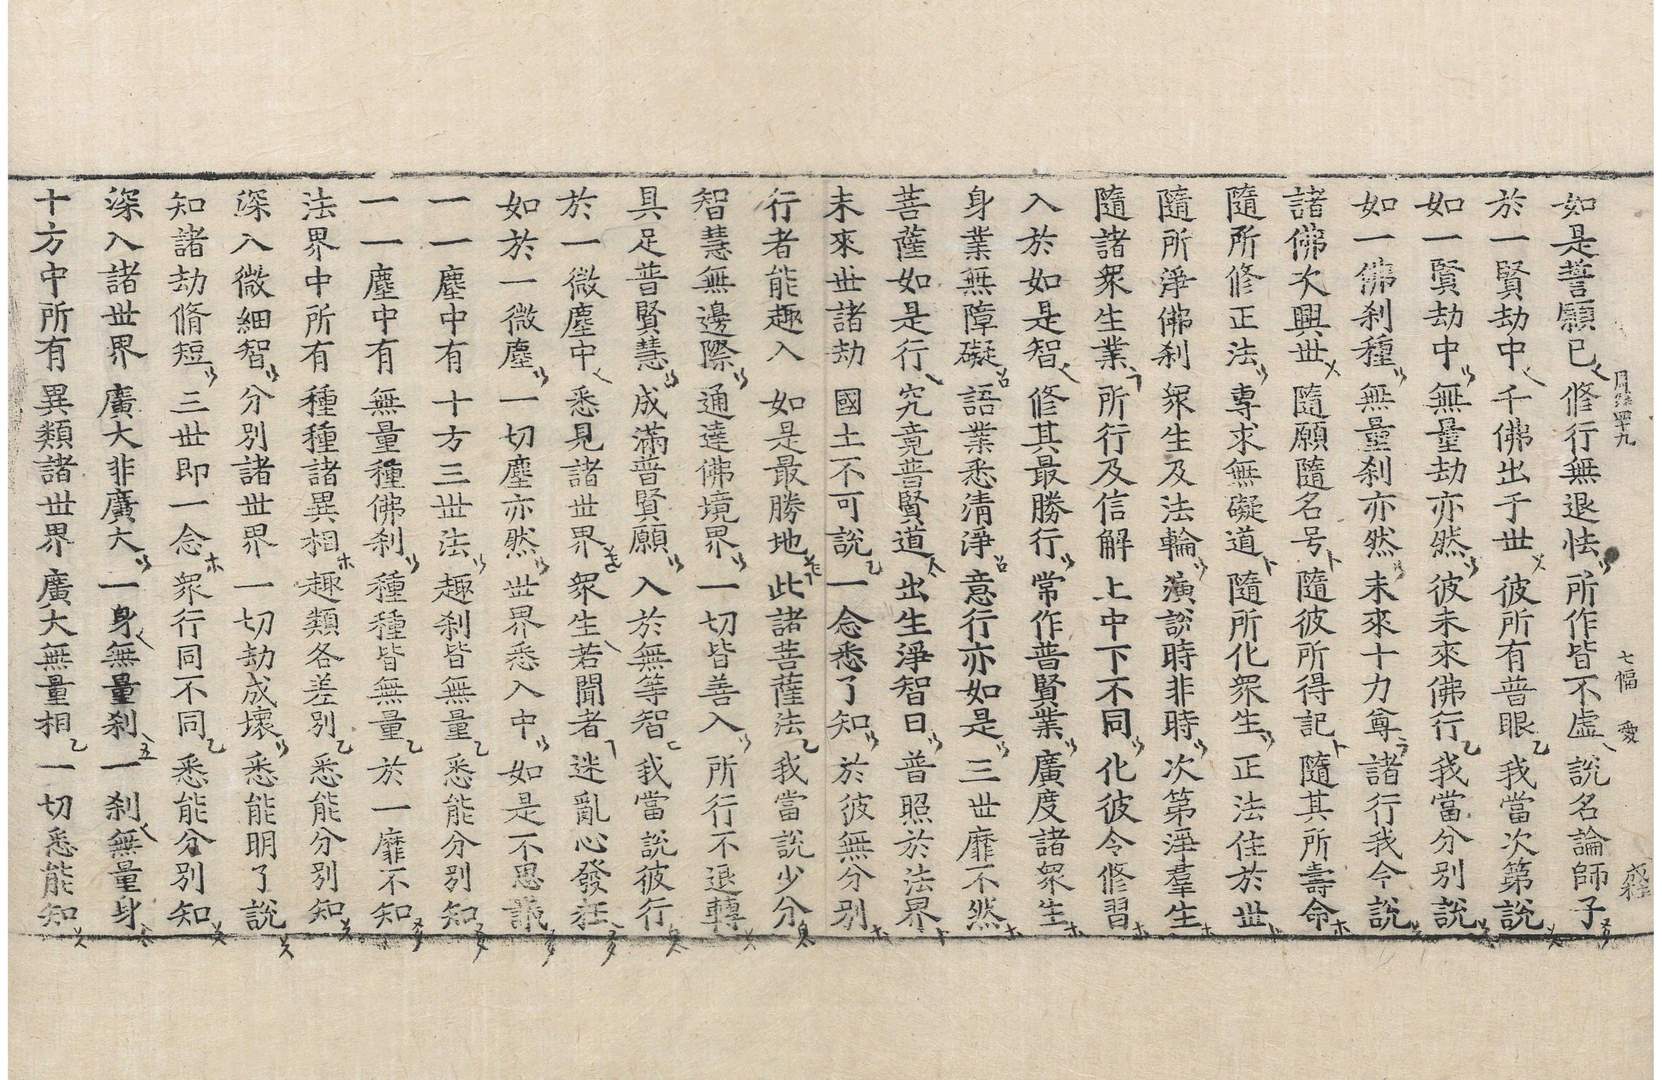 如是誓願已修行無退怯所作皆不虛說名論師子
於一賢劫中千佛出于世彼所有普眼我當次第說
如一賢劫中無量劫亦然彼未來佛行我當分別說
如一佛刹種無量刹亦然未來十力尊諸行我今說
諸佛次興世隨願隨名号隨彼所得記隨其所壽命
隨所修正法專求無礙道隨所化衆生正法住於世
隨所淨佛刹衆生及法輪演說時非時次第淨羣生
隨諸衆生業所行及信解上中下不同化彼令修習
入於如是智修其最勝行常作普賢業廣度諸衆生
身業無障礙語業悉清淨意行亦如是三世靡不然
菩薩如是行究竟普賢道出生淨智日普照於法界
未來世諸劫國土不可說一念悉了知於彼無分別
行者能趣入如是最勝地此諸菩薩法我當說少分
智慧無邊際通達佛境界一切皆善入所行不退轉
具足普賢慧成滿普賢願入於無等智我當說彼行
於一微塵中悉見諸世界衆生若聞者迷亂心發狂
如於一微塵一切塵亦然世界悉入中如是不思議
一一塵中有十方三世法趣刹皆無量悉能分別知
一一塵中有無量種佛刹種種皆無量於一靡不知
法界中所有種種諸異相趣類各差別悉能分別知
深入微細智分別諸世界一切劫成壞悉能明了說
知諸劫脩短三世即一念衆行同不同悉能分別知
深入諸世界廣大非廣大一身無量刹一刹無量身
十方中所有異類諸世界廣大無量相一切悉能知